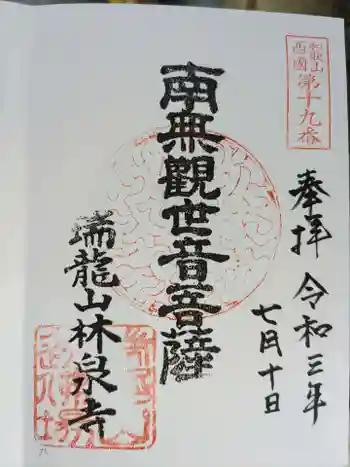 西國
第十九番
奉拝
令和三年
七月十日
南無觀世音菩薩
瑞龍山林泉寺